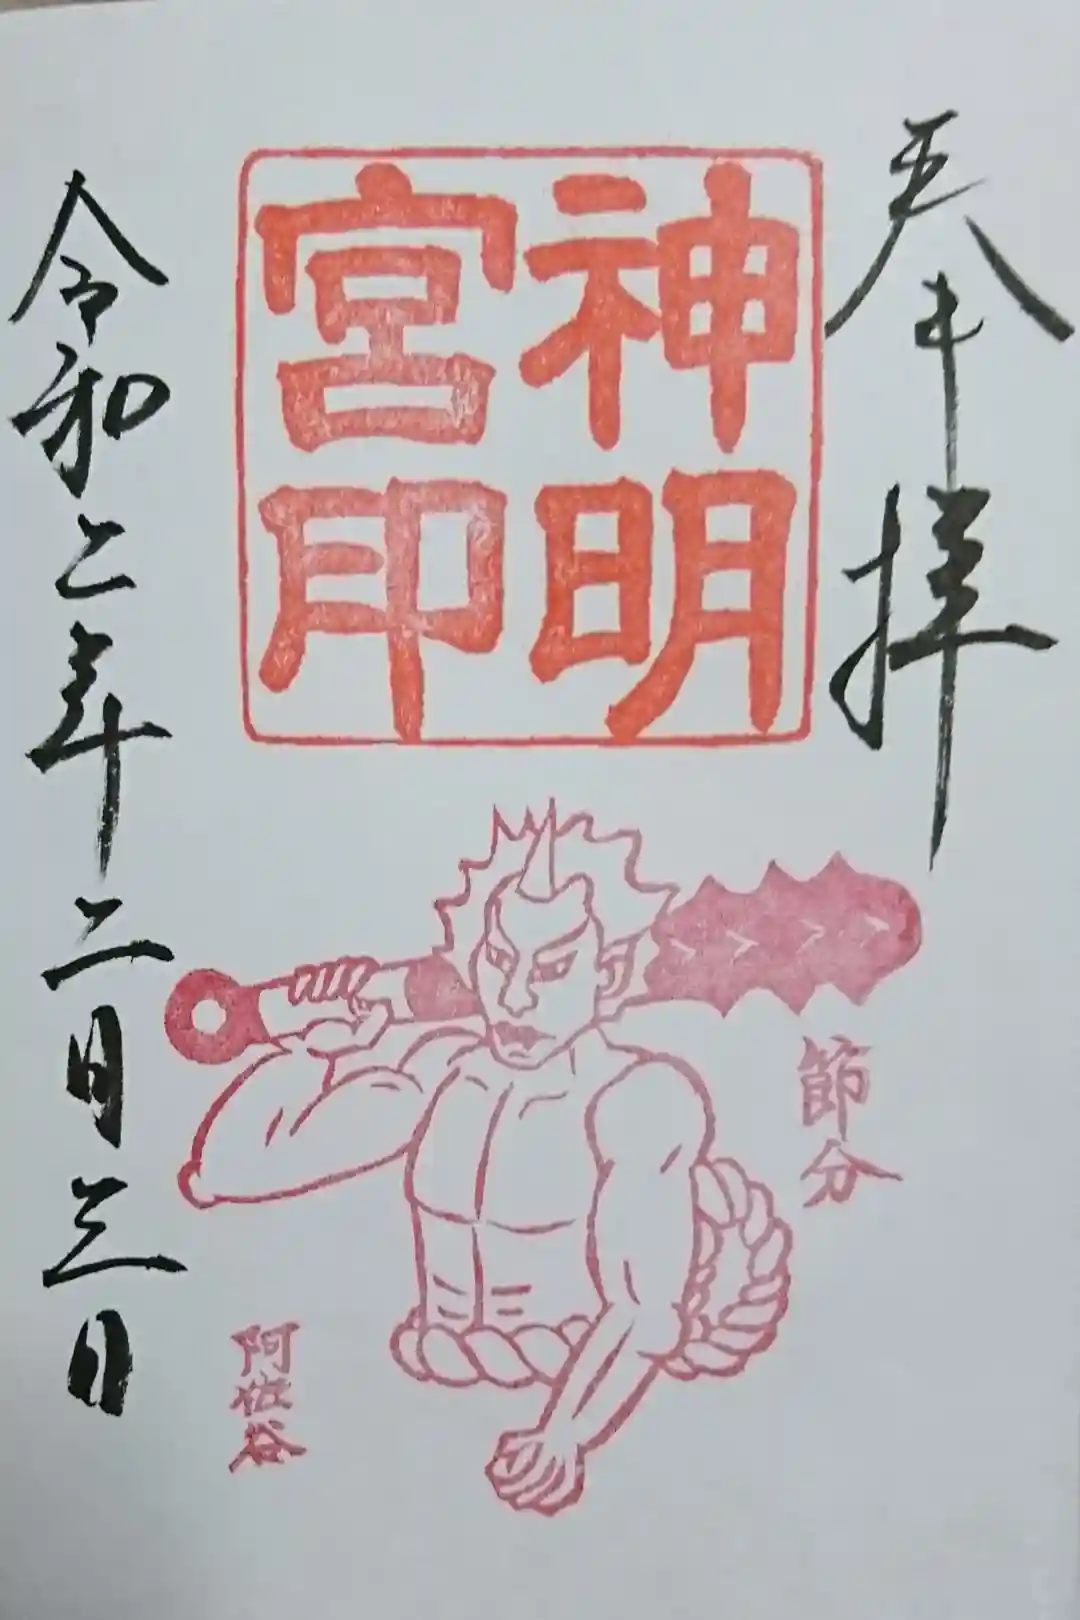 奉拝
神明
宮印
節分
阿佐谷
令和二年二月三日